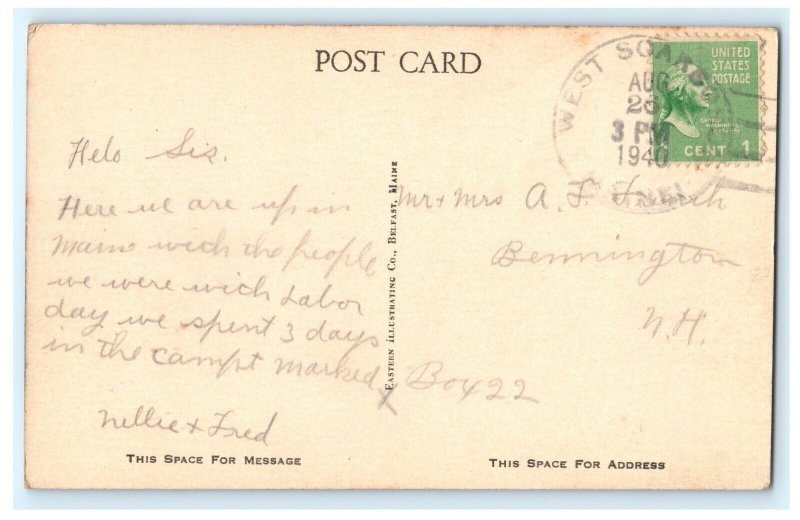 POST CARD
WEST
AUG
3 PM
1940
UNITED
STATES
POSTAGE
CENT 1
Helo Sis.
Here we are up in
Maine wich the people
we were wich Labor
day we spent 3 days
in the campt marked X
Nellie + Fred
THIS SPACE FOR MESSAGE
EASTERN ILLUSTRATING CO., BELFAST, MAINE
Mr + Mrs A.
Bennington
N.H.
Box 22
THIS SPACE FOR ADDRESS